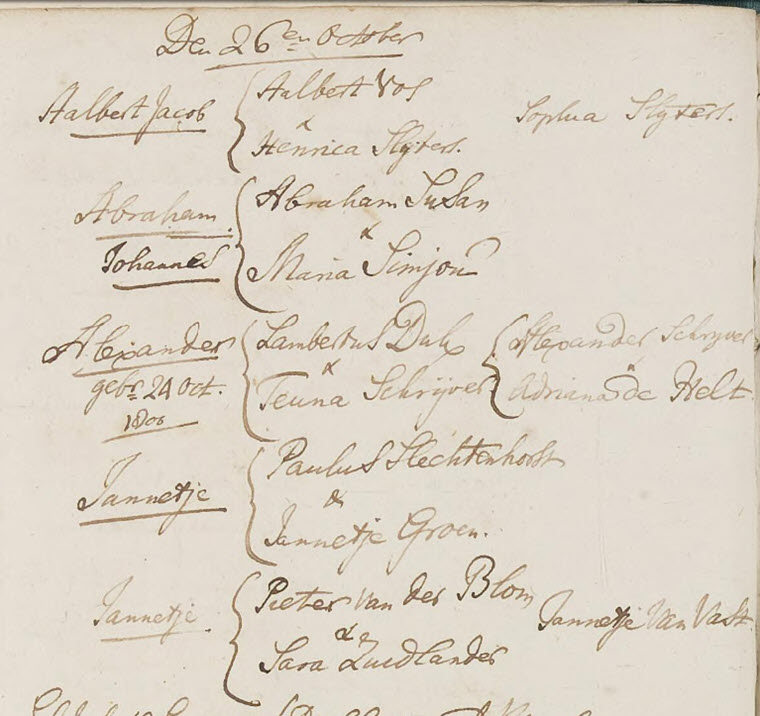 Den 26en October
Aalbert Jacob
Aalbert Vos
&
Henrica Slyters.
Sophia Slyters.
Abraham
Johannes
Abraham Susan
&
Maria Simjou
Alexander
gebr. 24 Oct.
1800
Lambertus Dulx
&
Teuna Schrijver
Alexander Schryver
&
Adriana de Helt
Jannetje
Paulus Slechtenhorst
&
Jannetje Groen.
Jannetje
Pieter van der Blom
&
Sara Zuidlander
Jannetje Van Vast